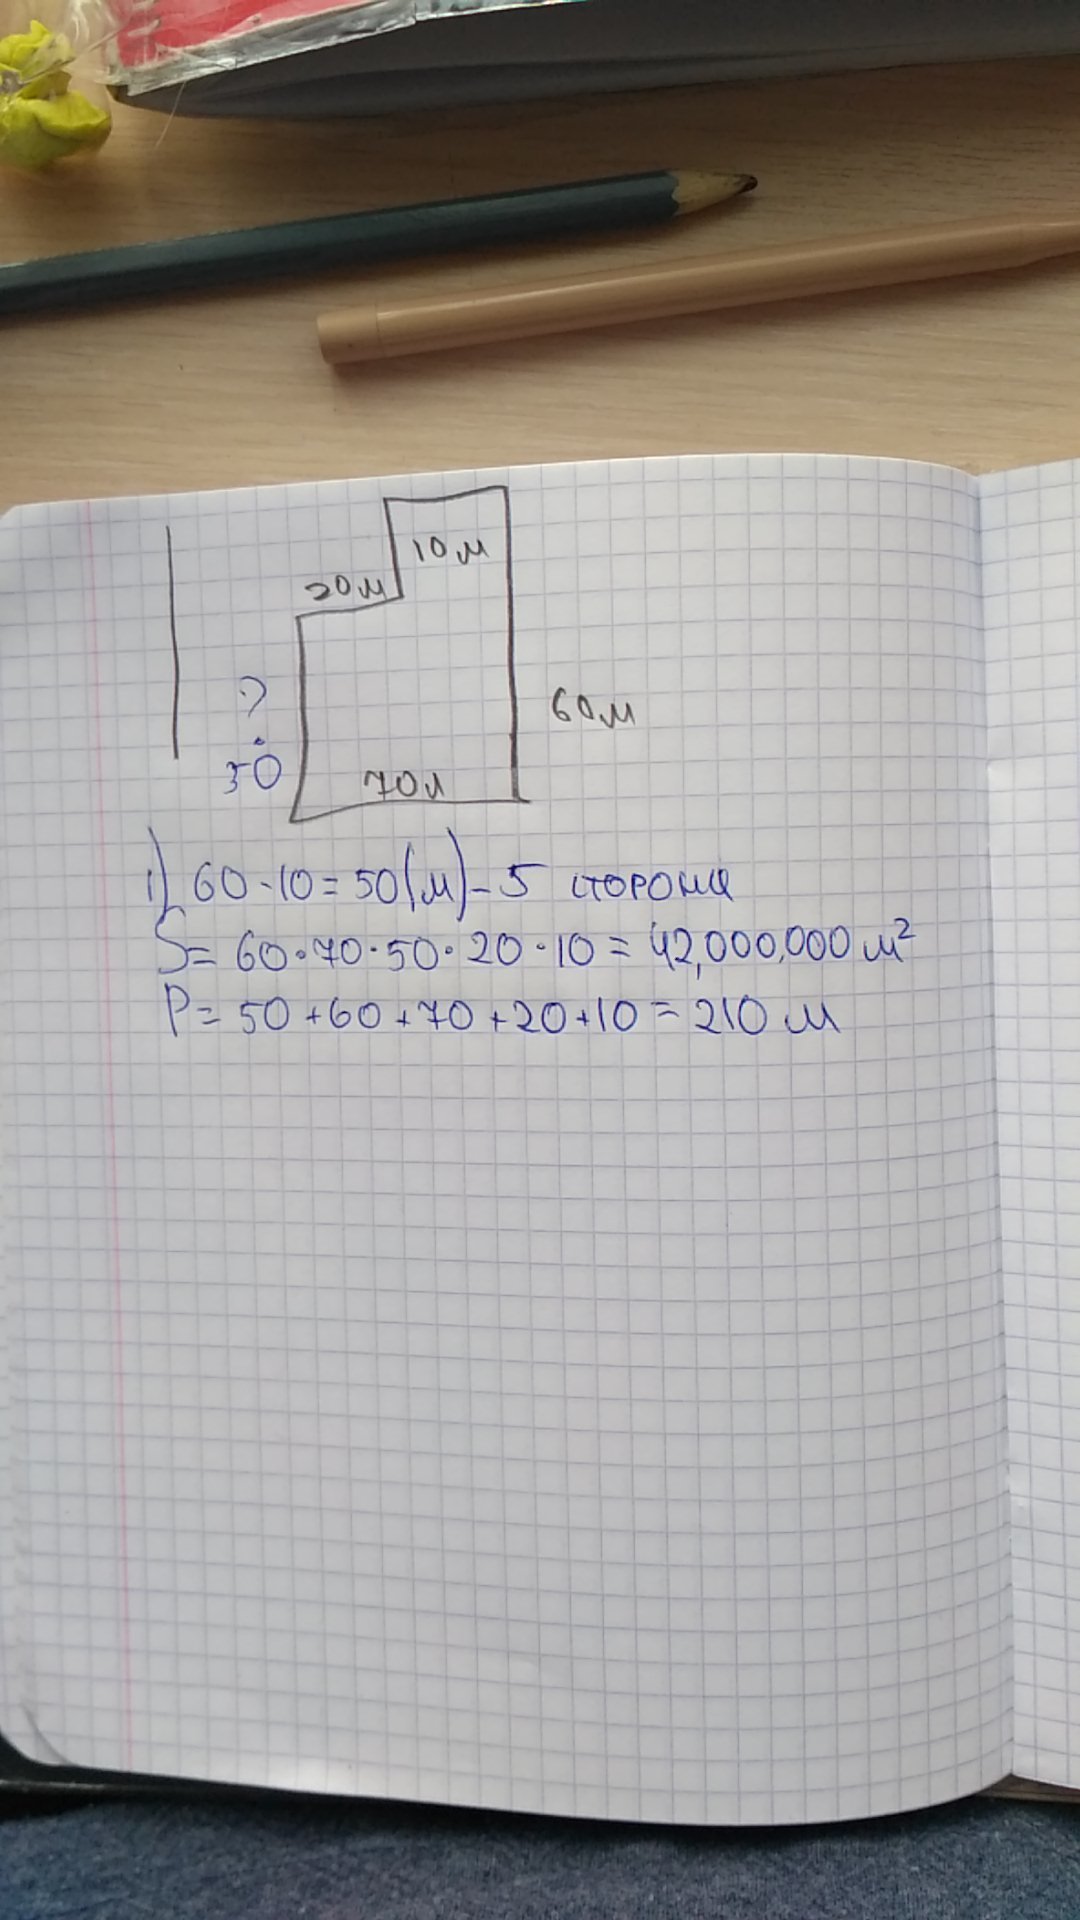 10 м
20 м
60 м
?
50
70 м
1) 60-10=50(м)-5 сторона
S= 60·70·50·20·10=42,000,000 м²
P= 50+60+70+20+10=210 м